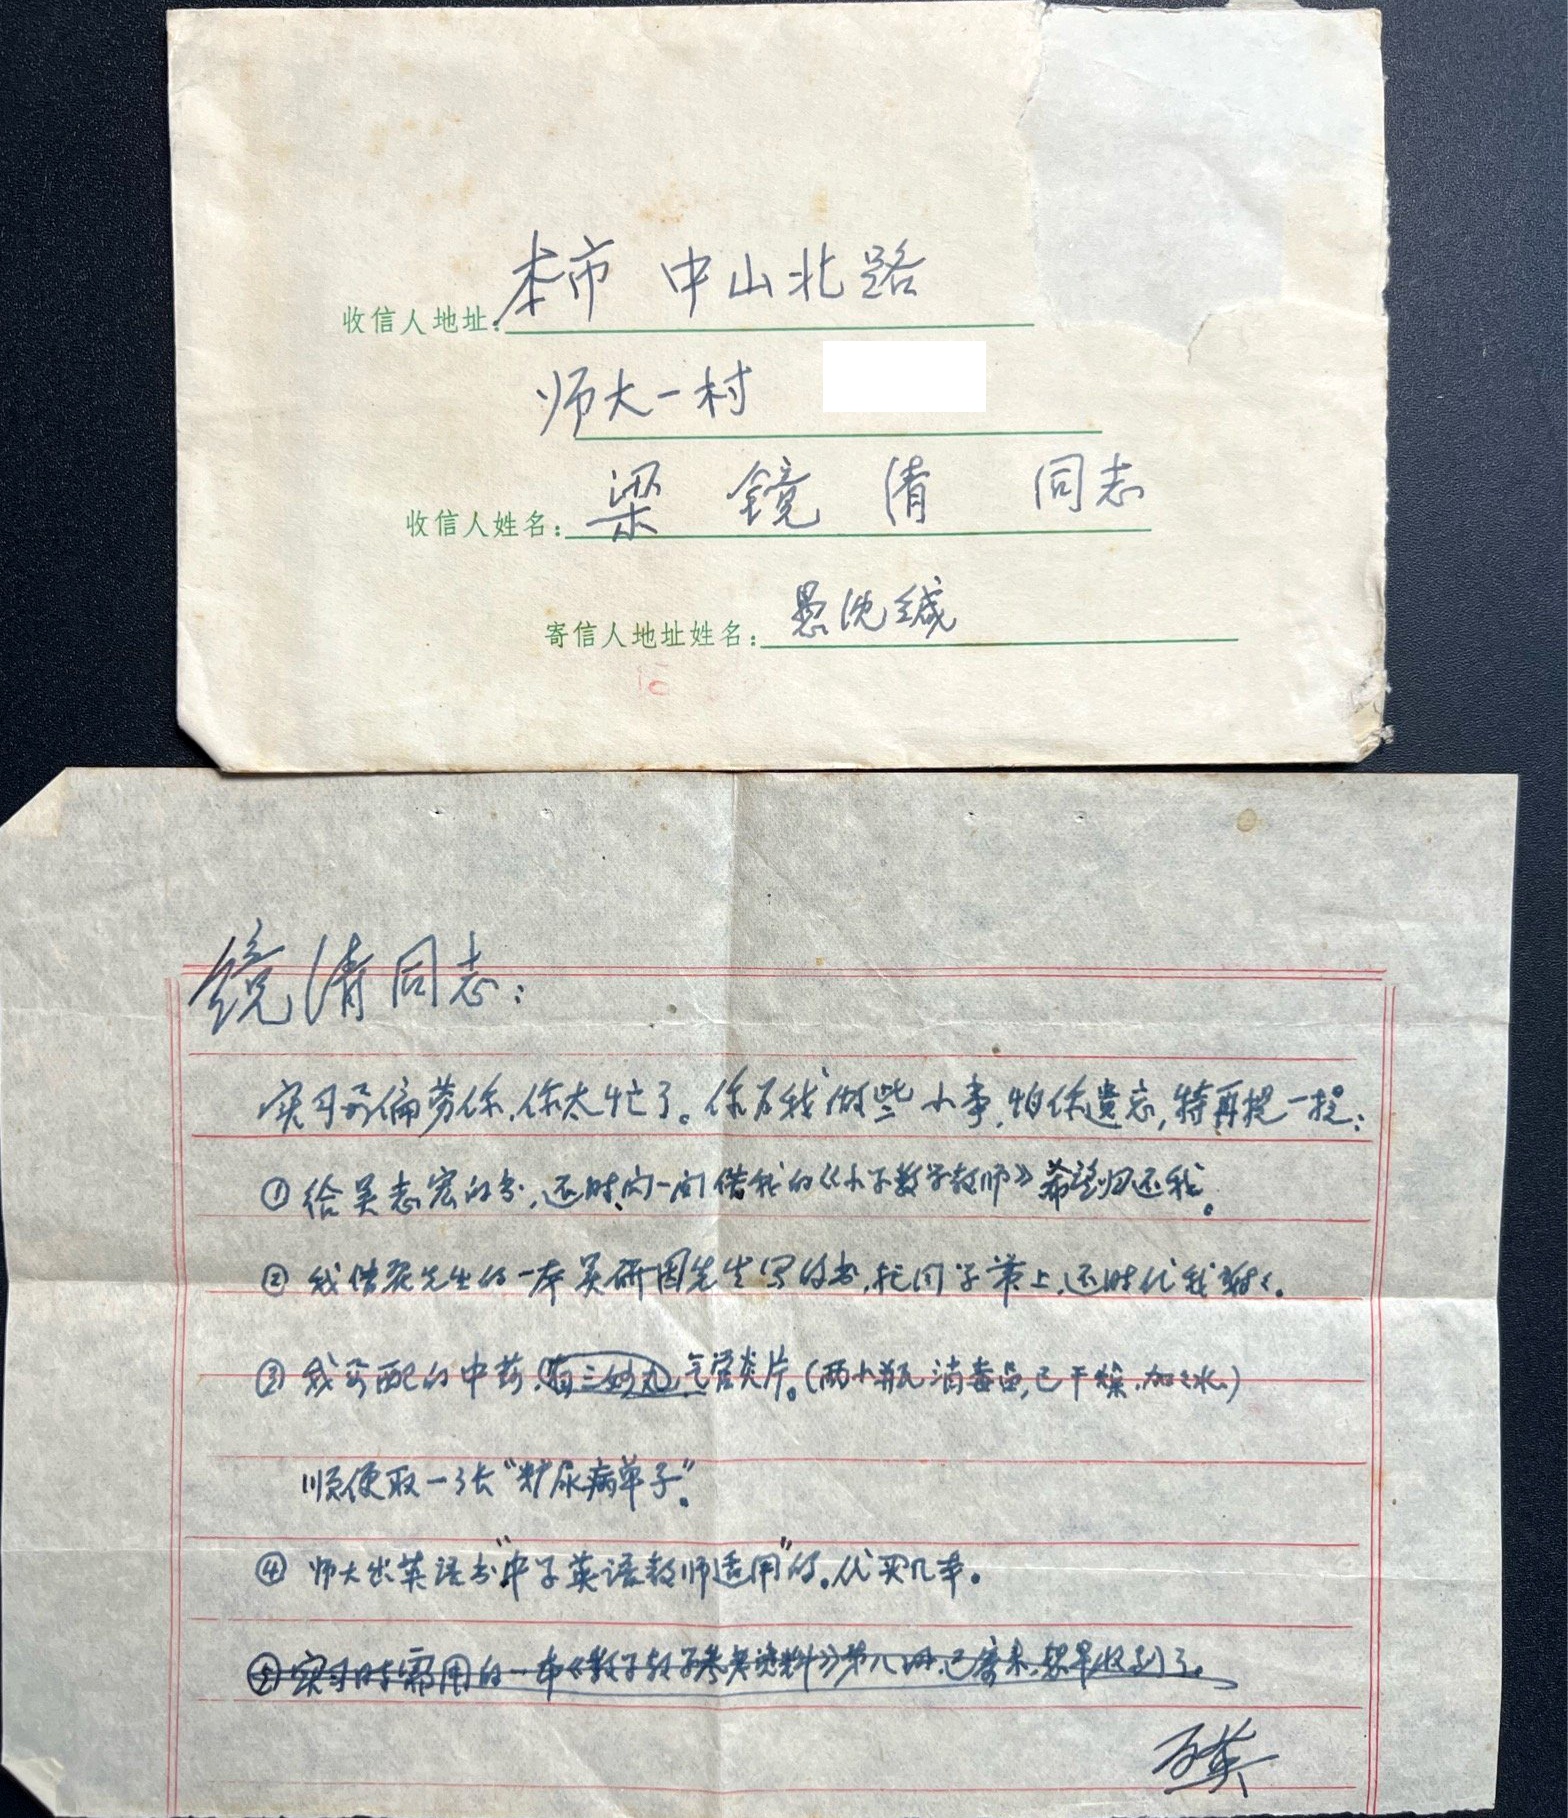 收信人地址: 本市 中山北路
师大一村
收信人姓名: 梁镜清 同志
寄信人地址姓名: 沈缄
镜清同志:
实习 偏劳你,你太忙了。你为我做些小事,怕你遗忘,特再提一提:
①给吴志宏的书,还时问一问借我的《小学数学教师》希望归还我。
②我借 先生的一本吴研因先生写的书,托同学带上,还时代我谢谢。
③我要配的中药,有三妙丸,气管炎片。(两小瓶消毒 ,已干燥,加些水)
顺便取一张“ 尿病单子”。
④师大出英语书“中学英语教师适用”的。代买几本。
⑤实习时需用的一本《数学教学参考资料》第八册,已寄来,想早收到了。